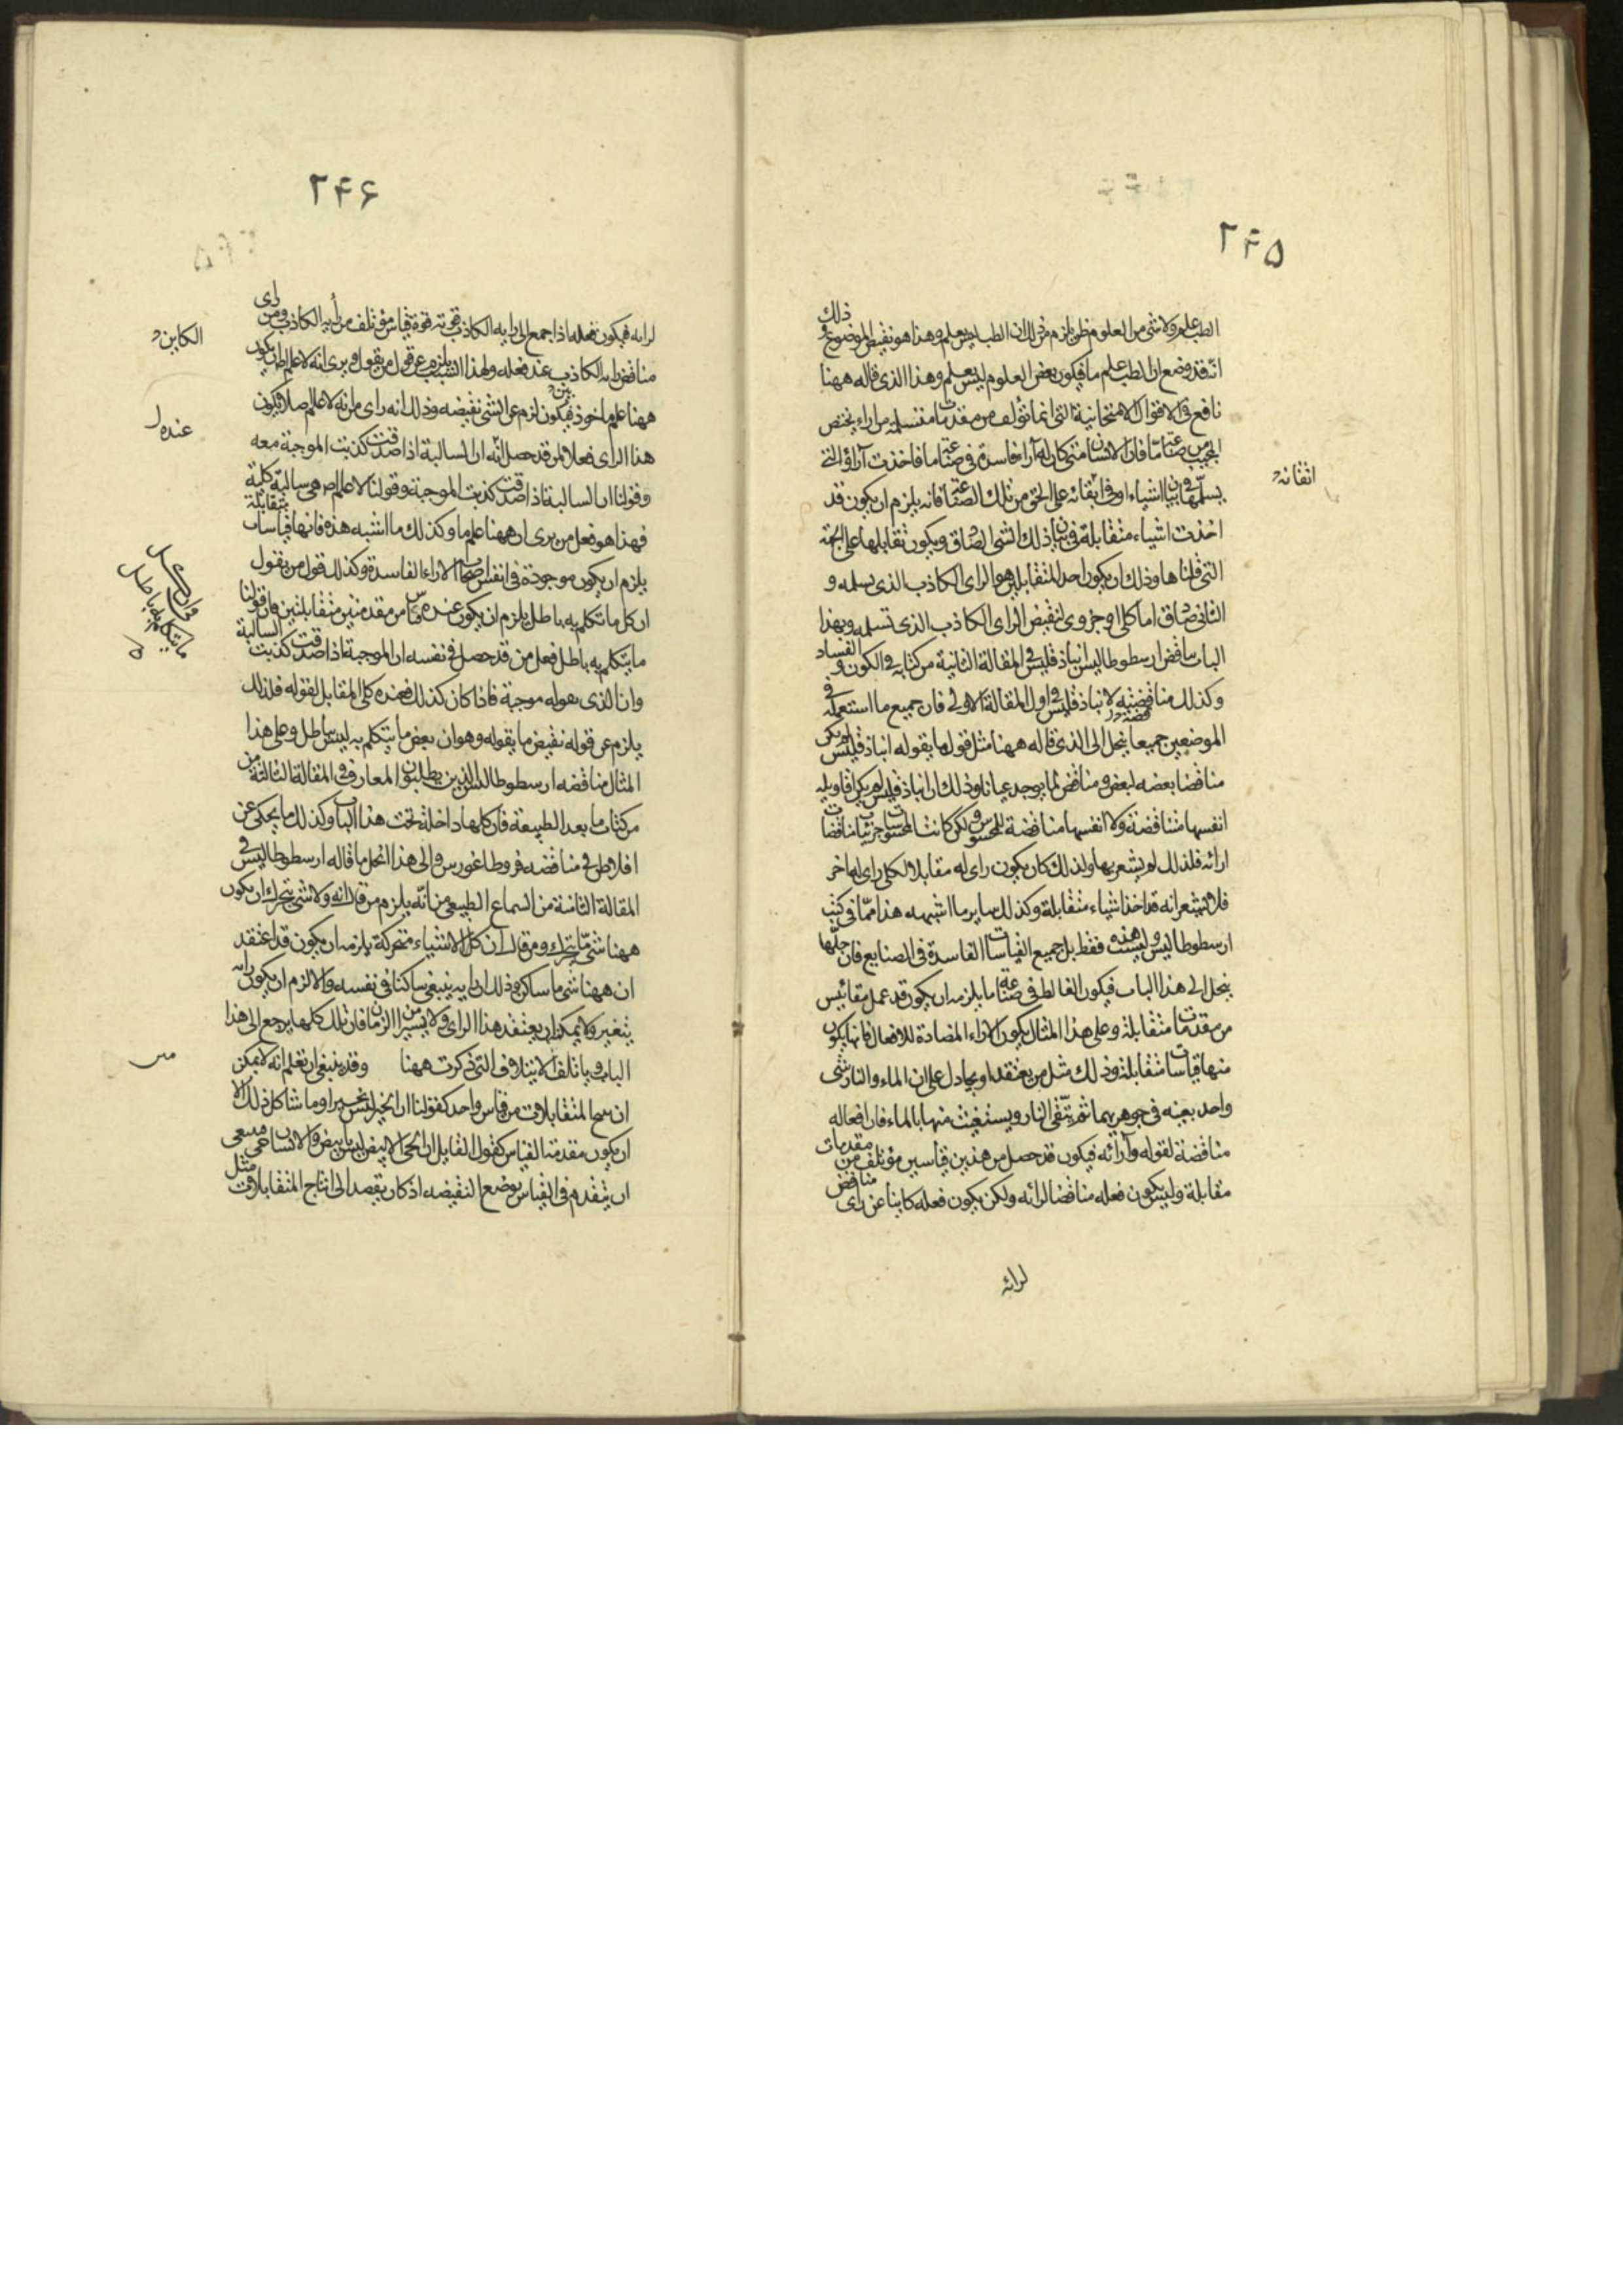 ٢۴۵
ذلك
الطب علم ولا شئ من العلوم ظن يلزم من ذلك ان الطب ليس بعلم وهذا هو نقيض الموضوع
انه قد وضع ان الطب علم ما فيكون بعض العلوم ليس بعلم وهذا الذى قاله ههنا
نافع فى الاقوال الامتحانية التى انما تؤلف من مقدمات مقتسلمة من اراء يختص
المجيب من صناعة ما فان الانسان متى كان له آراء فاسدة فى صناعة ما فاخذت آراؤه التى
يسلمها اشياء او فى اتقانه على الحق من تلك الصناعة فانه يلزم ان يكون قد
اتقانه
اخذت اشياء متقابلة فى بيان ذلك الشئ الصادق ويكون تقابلها على الجهة
التى قلناها وذلك ان يكون احد المتقابلين هو الراى الكاذب الذى يسلمه و
الثانى صادق اما كلى او جزوى لنقيض الراى الكاذب الذى تسلمه وبهذا
الباب ناقض ارسطوطاليس انباذقليس فى المقالة الثانية من كتابه فى الكون و الفساد
وكذلك مناقضته لانباذقليس فى اول المقالة الاولى فان جميع ما استعمله فى
الموضعين جميعا ينحل الى الذى قاله ههنا مثل قوله ما يقوله انباذقليس
مناقضا بعضه لبعض ومناقض لما يوجد عيانا وذلك ان انباذقليس لم يكن اقاويله
انفسها متناقضة ولا انفسها مناقضة للمحسوس ولكن كانت المحسوسات جزئيات مناقضات
ارائه فلذلك لم يشعر بها ولذلك كان يكون راى له مقابلا لكلى راى له اخر
فلا يشعر انه قد اخذ اشياء متقابلة وكذلك ساير ما اشبهه هذا مما فى كتب
ارسطوطاليس وليست هذه فقط بل جميع القياسات الفاسدة فى الصنايع فان جلها
ينحل الى هذا الباب فيكون الغالط فى صناعة ما يلزمه ان يكون قد عمل مقائيس
من مقدمات متقابلة وعلى هذا المثال يكون الاراء المضادة للافعال فانها يكون
منها قياسات متقابلة وذلك مثل من يعتقد او يجادل على ان الماء والنار شئ
واحد بعينه فى جوهريهما ثم يتقى النار ويستغيث منها بالماء فان افعاله
مناقضة لقوله وآرائه فيكون قد حصل من هذين قياسين مؤتلف من مقدمات
مقابلة وليس يكون فعله مناقضا لرائه ولكن يكون فعله كاينا عن راى مناقض
لرائه
٢۴۶
لرايه فيكون فعله اذا جمع الى رايه الكاذب قوته قوة قياس مؤتلف من رأيه الكاذب ومن راى
الكاين
مناقض لرايه الكاذب عند فعله ولهذا السبب يلزم عن قول من يقول ويرى انه لا علم ان يكون
ههنا علم ماخوذ فيكون لزم عن الشئ نقيضه وذلك انه راى من انه لا علم اصلا فيكون
عنده
هذا الراى فعلا لمن قد حصل انه ان السالبة اذا صدقت كذبت الموجبة معه
وقولنا ان السالبة اذا صدقت كذبت الموجبة وقولنا لا علم هى سالبة كلية
فهذا هو فعل من يرى ان ههنا علم ما وكذلك ما اشبه هذه فانها قياسات متقابلة
يلزم ان يكون موجودة فى انفس اصحاب الاراء الفاسدة وكذلك قول من يقول
ان كل ما يتكلم به باطل يلزم ان يكون عنده من مقدمتين متقابلتين فان قولنا
ما يتكلم به باطل فعل من قد حصل فى نفسه ان الموجبة اذا صدقت كذبت السالبة
وان الذى يقوله موجبة فاذا كان كذلك فعنده كلى المقابل لقوله فلذلك
يلزم عن قوله نقيض ما يقوله وهو ان بعض ما يتكلم به ليس باطل وعلى هذا
المثال مناقضه ارسطوطاليس الذين يطلبون المعارف فى المقالة الثالثة من
من كتاب ما بعد الطبيعة فان كلها داخلة تحت هذا الباب وكذلك ما يحكى عن
افلاطن فى مناقضه فروطاغورس والى هذا انحل ما قاله ارسطوطاليس فى
المقالة الثامنة من السماع الطبيعى من انه يلزم من قال انه ولا شئ يتحرك ان يكون
ههنا شئ ما يتحرك ومن قال ان كل الاشياء متحركة يلزمه ان يكون قد اعتقد
ان ههنا شئ ما ساكن وذلك ان رايه ينبغى ساكنا فى نفسه والا لزم ان يكون رايه
يتغير ولا يمكن ان يعتقد هذا الراى ولا يسيرا من الزمان فان تلك كلها يرجع الى هذا
الباب وياتلف الايتلاف التى ذكرت ههنا وقد ينبغى ان تعلم انه لا يمكن
ان نتج المتقابلات من قياس واحد كقولنا ان الخير ليس بخير او ما شاكل ذلك الا
ان يكون مقدمة القياس كقول القايل ان الحى الابيض ليس بابيض والانسان حى
ان يتقدم فى القياس بوضع النقيضه اذ كان يقصد الى انتاج المتقابلات مثل